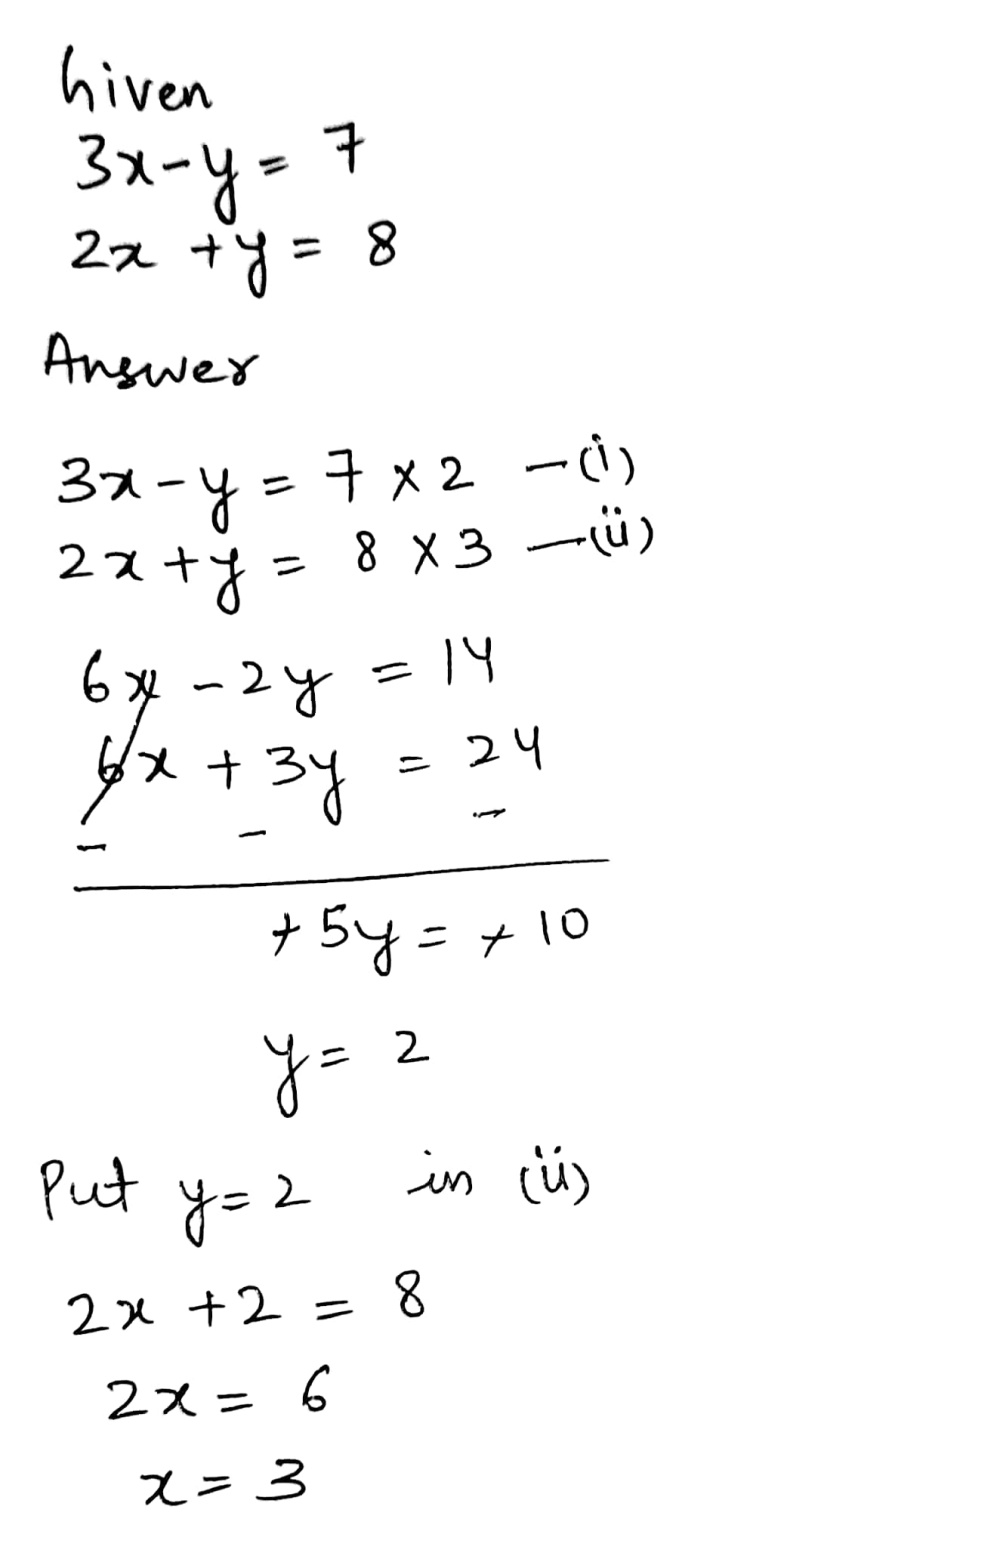 Given
3x-y = 7
2x +y = 8
Answer
3x-y = 7 x 2 —(i)
2x+y = 8 x 3 —(ii)
6x - 2y = 14
6x + 3y = 24
- - -
+5y = +10
y = 2
Put y=2 in (ii)
2x +2 = 8
2x = 6
x = 3